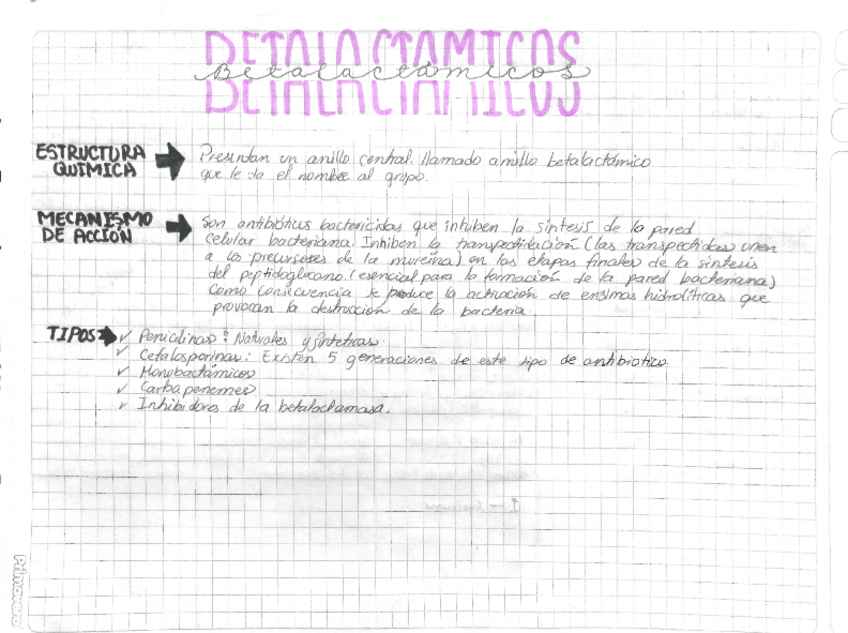 BETALACTAMICOS
Betalactámicos
ESTRUCTURA QUIMICA → Presentan un anillo central llamado anillo betalactámico
que le da el nombre al grupo.
MECANISMO DE ACCIÓN → Son antibióticos bactericidas que inhiben la síntesis de la pared
celular bacteriana. Inhiben la transpeptidación (las transpeptidasas unen
a los precursores de la mureína) en las etapas finales de la síntesis
del peptidoglicano. (esencial para la formación de la pared bacteriana)
Como consecuencia se produce la activación de enzimas hidrolíticas que
provocan la destrucción de la bacteria.
TIPOS → ✓ Penicilinas: Naturales y sinteticas
✓ Cefalosporinas: Existen 5 generaciones de este tipo de antibiotico.
✓ Monobactámicos
✓ Carbapenemes
✓ Inhibidores de la betalactamasa.
Primavera